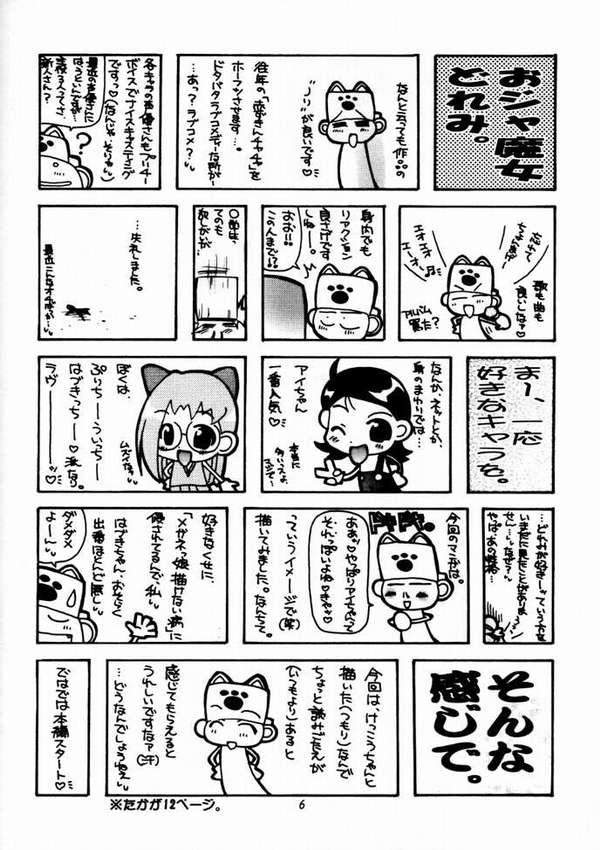 おジャ魔女
どれみ。
なんと言っても作品の
"ノリ"が良いです♡
往年の「赤ずきんチャチャ」を
ホーフツさせます…。
ドタバタラブコメディーな所が…
…あっ？ラブコメ？
各キャラの声優さんもプリチー
ボイスでナイスキャスティング
ですっ♡(なんじゃそりゃ)
最近の声優さんに
はうといんですが…
主役る人ってさ、
新人さん？
？
歌も曲も
良いしなァ♡
アルバム
買った？
エオエオ
エーオ♪
身内でも
リアクション
良さげです
しねー。
おお!!
この人まで!!
…失礼しました。
まー、一応
好きなキャラを。
なんか、ネットとか
身のまわりでは…
アイちゃん
一番人気♡
ぼくは、
ぷりちーーういっちーー
はづきっちーー♡派なり
ラヴーー♡
ムズイなァ
…どれみが好きー♡っていう方を
いまだに見たことがありま
せん…。なぜ？
今回のマンガは。
ああっ♡やっぱりアイちゃんって
それっぽいよね♡きゃっ♡
っていうイメージで(笑)
描いてみました。なんちて。
好きなくせに、
「メガネっ娘描けない病」に
侵されてるんで、私
はづきちゃん、おそらく
出番ほとんど無し
ダメダメ
よーー
そんな
感じで。
今回は、けっこうちゃんと
描いた(つもり)なんで
ちょっと読みごたえが
(いつもより)あると
感じてもらえると
うれしいですなァ(汗)
…どうなんでしょうねぇ
ではでは本編
スタート♡
※たかが12ページ。
6